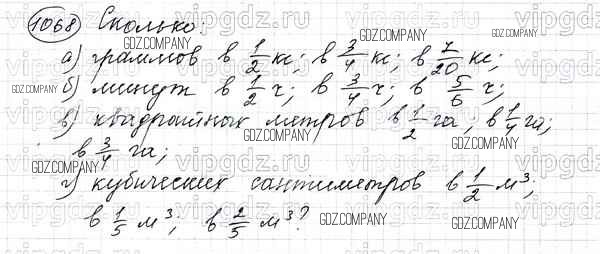 1068 Сколько:
а) граммов в 1/2 кг; в 3/4 кг; в 7/20 кг;
б) минут в 1/2 ч; в 3/4 ч; в 5/6 ч;
в) квадратных метров в 1/2 га, в 1/4 га;
в 3/4 га;
г) кубических сантиметров в 1/2 м³;
в 1/5 м³; в 2/5 м³?